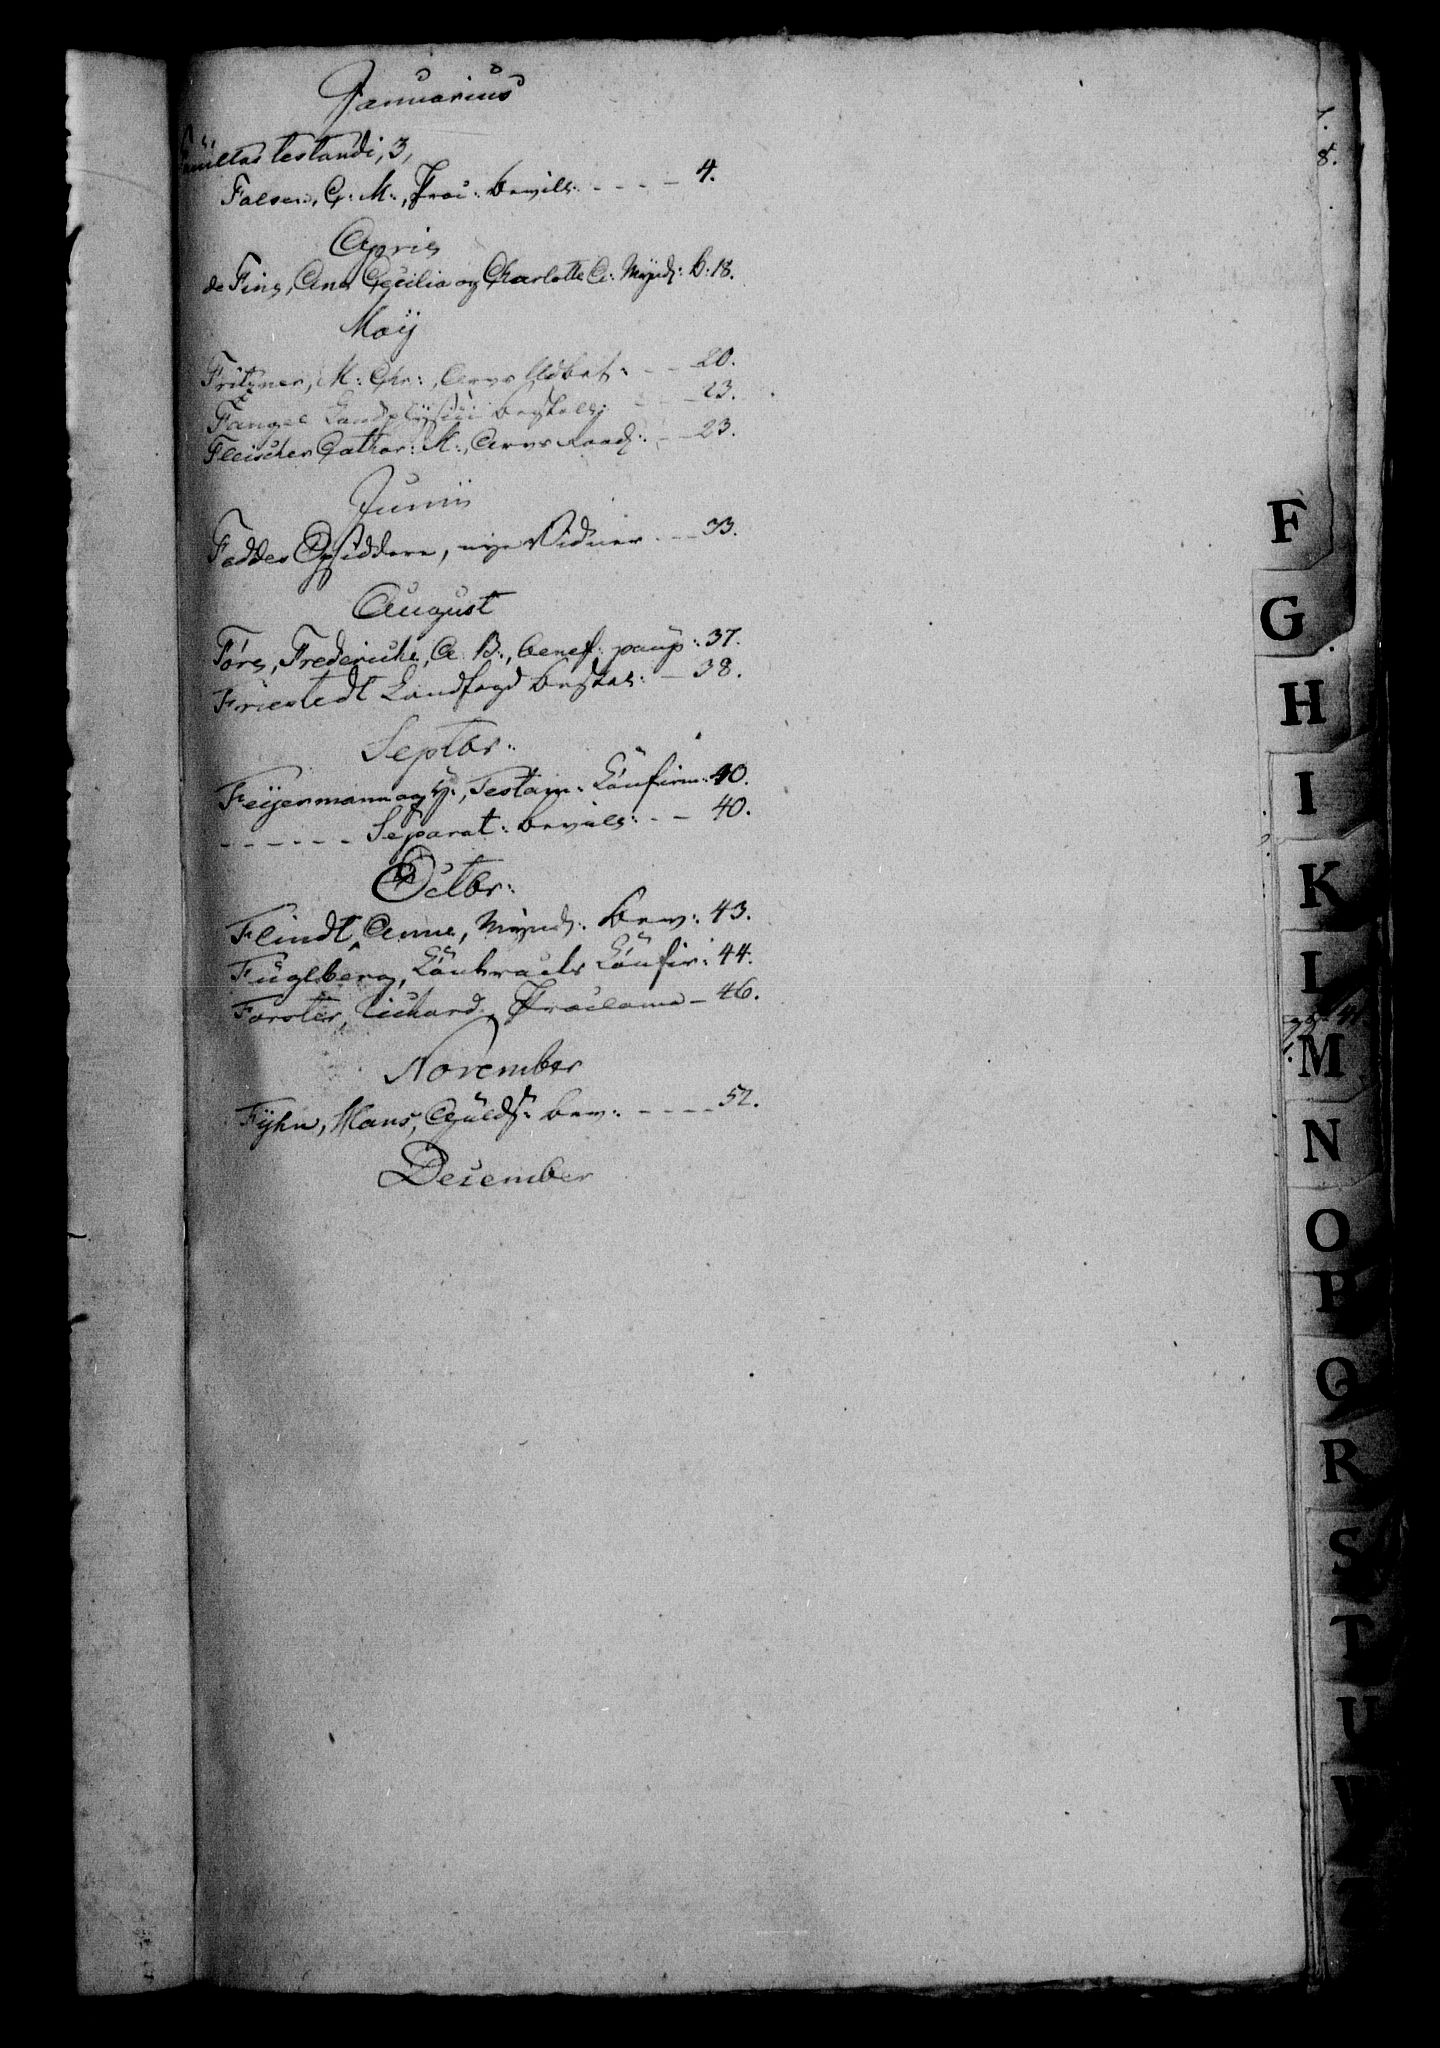 Januarius
facultas testandi, 3,
Falsen, C: M:, Proc: bevill: - - - - 4.
April
de Fine, Ana Cecilia og Charlotte A: Mynd: b: 18.
Maij
Fritzner, M: Chr:, Arve Udbet: - - 20.
Fangel Landphysici bestall: - - 23.
Fleischer Cathar: M:, Arve - - 23.
Junii
Feddes Opsiddere, nye Vidner - - - 33.
August
Føre, Frederiche, A. B:, benef: paup: 37.
Friestedt Landfogd bestal: - 38.
Septbr:
Feyermann og H:, Testam: Confirm: 40.
- - - - - - Separat: bevill: - - 40.
Octbr:
Flindt, Anne, Mynd: bev: 43.
Fuglberg, Contracts Confir: 44.
Forster, Richard, Proclama - 46.
November
Fyhn, Hans, Opuldsn: bev: - - - - 52.
December
7.
8.
F
G
H
I
K
L
M
N
O
P
Q
R
S
T
U
W